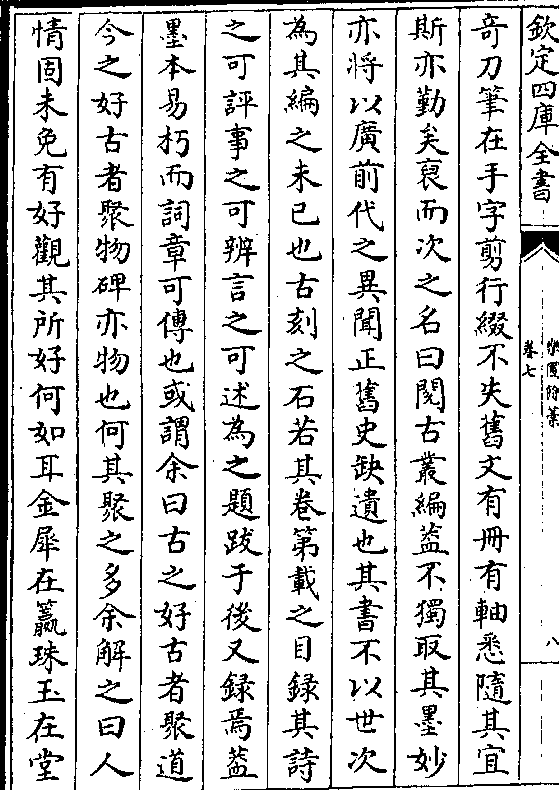 欽定四庫全書
樂圃餘藁
卷七
八
竒刀筆在手字剪行綴不失舊文有冊有軸悉隨其宜
斯亦勤矣裒而次之名曰閱古叢編葢不獨取其墨妙
亦將以廣前代之異聞正舊史缺遺也其書不以世次
為其編之未已也古刻之石若其卷第載之目錄其詩
之可評事之可辨言之可述為之題跋于後又錄焉葢
墨本易朽而詞章可傳也或謂余曰古之好古者聚道
今之好古者聚物碑亦物也何其聚之多余解之曰人
情固未免有好觀其所好何如耳金犀在籯珠玉在堂